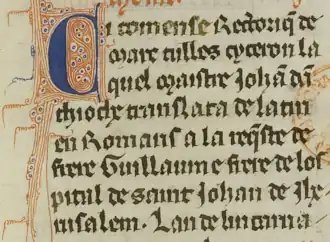 Ci comense Rectoriq̃ de
marc tulles cyceron la
quel maistre Johã dã
thioche translata de latin
en Romans a la reqͥste de
frere Guillaume frere de los
pitul de saint Johan de Jhe
rusalem. Lan de lincarna